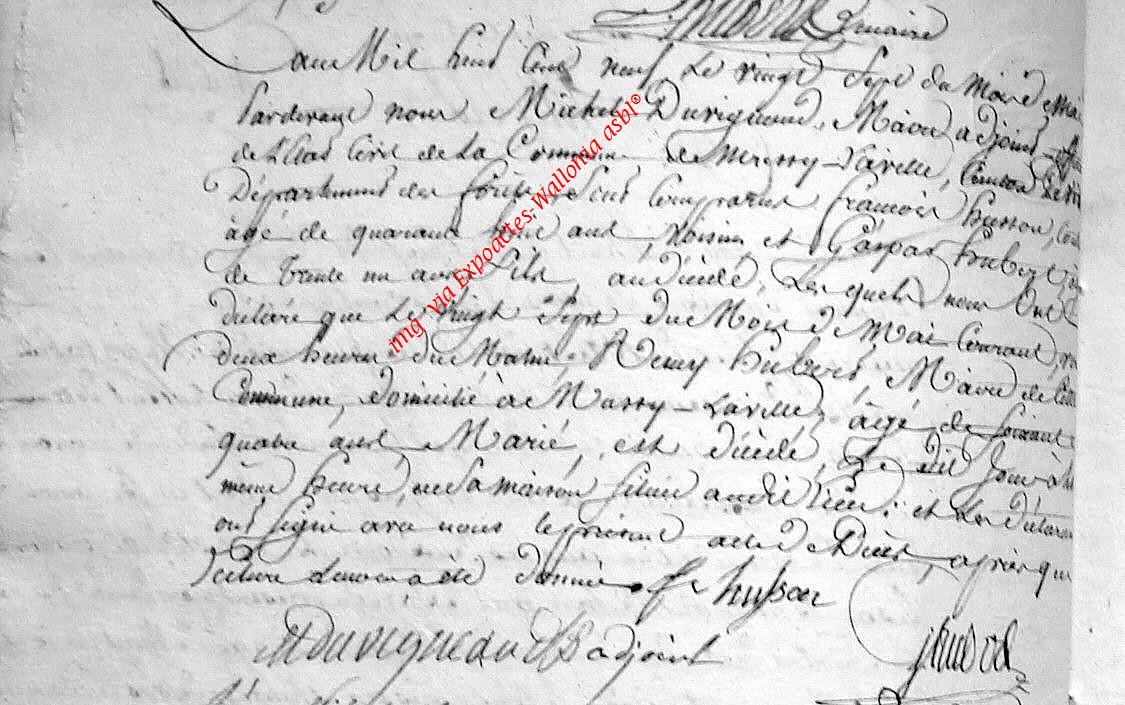 maire
L'an Mil huit Cent neuf, Le vingt Sept du Mois de Mai
Pardevant nous Michel Duvigneaud, Maire adjoint
de L'Etat Civil de La Commune de Merssy-Laville, Canton de
Département des forêts, Sont Comparus francois husson,
âgé de quarante ans, voisin et Gaspar hubert
de trente un ans, fils, audécédé, Lesquels nous ont
déclaré que Le Vingt Sept Du Mois de Mai Courant,
deux heures du Matin, Remy hubert, Maire de Cette
Commune, domicilié à Massy-Laville, âgé de soixante
quatre ans, Marié, est décédé, Le dit Jour à la
même heure, en Sa maison située audit lieu; et Les déclarans
ont signé avec nous le présent acte de Décès, après que
lecture Leur en a été donnée. fr husson
MDuvigneaud adjoint
img via Expoactes-Wallonia asbl®